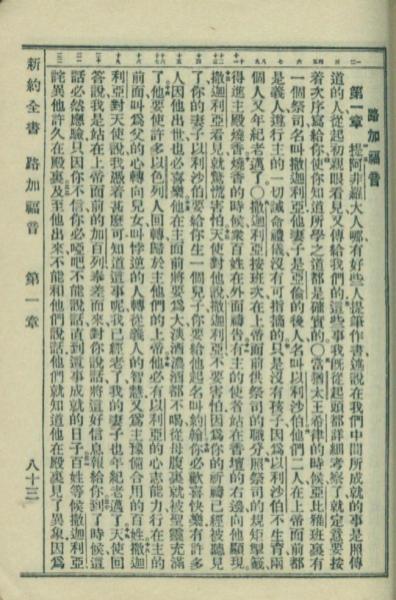 路加福音
第一章　提阿非羅大人哪有好些人提筆作書述說在我們中間所成就的事是照傳
道的人從起初親眼看見又傳給我們的這些事我既從起頭都詳細考察了就定意要按
着次序寫給你使你知道所學之道都是確實的〇當猶太王希律的時候亞比雅班裏有
一個祭司名叫撒迦利亞他妻子是亞倫的後人名叫以利沙伯他們二人在上帝面前都
是義人遵行主的一切誡命禮儀沒有可指摘的只是沒有孩子因爲以利沙伯不生育兩
個人又年紀老邁了〇撒迦利亞按班次在上帝面前供祭司的職分照祭司的規矩掣籤
得進主殿燒香燒香的時候衆百姓在外面禱告有主的使者站在香壇的右邊向他顯現
撒迦利亞看見就驚慌害怕天使對他說撒迦利亞不要害怕因爲你的祈禱已經被聽見
了你的妻子以利沙伯要給你生一個兒子你要給他起名叫約翰你必歡喜快樂有許多
人因他出世也必喜樂他在主面前將要爲大淡酒濃酒都不喝從母腹裏就被聖靈充滿
了他要使許多以色列人回轉歸於主他們的上帝他必有以利亞的心志能力行在主的
前面叫爲父的心轉向兒女叫悖逆的人轉從義人的智慧又爲主豫備合用的百姓撒迦
利亞對天使說我憑着甚麼可知道這事呢我已經老了我的妻子也年紀老邁了天使回
答說我是站在上帝面前的加百列奉差而來對你說話將這好信息報給你到了時候這
話必然應驗只因你不信你必啞吧不能說話直到這事成就的日子百姓等候撒迦利亞
詫異他許久在殿裏及至他出來不能和他們說話他們就知道他在殿裏見了異象因爲
新約全書　路加福音　第一章　八十三